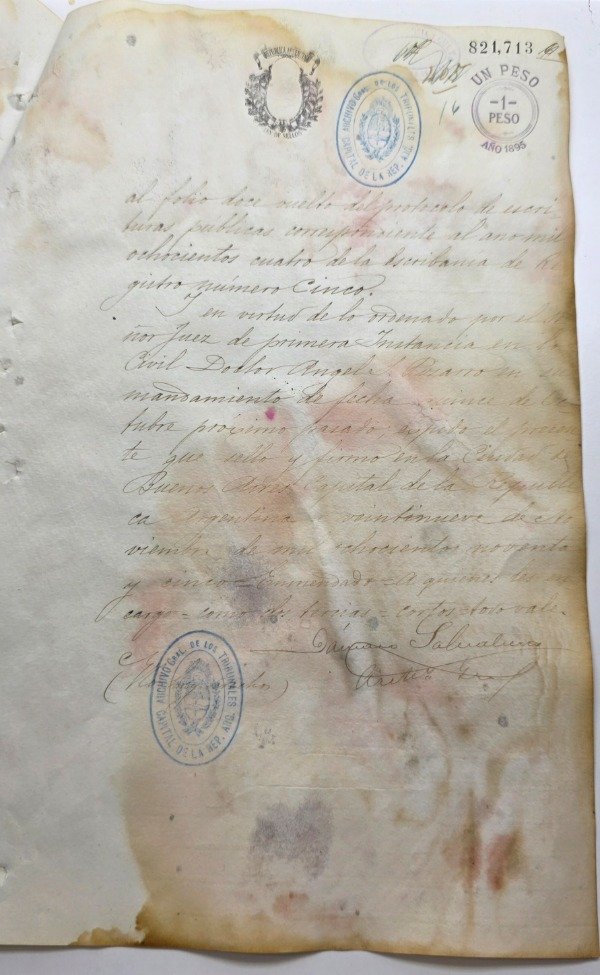 821,713
UN PESO
-1-
PESO
AÑO 1895
16
ARCHIVO GRAL. DE LOS TRIBUNALES
CAPITAL DE LA REP. ARG.
al folio doce vuelto del protocolo de escri
turas publicas correspondiente al año mil
ochocientos cuatro de la Escribania de Re
gistro número Cinco.
y en virtud de lo ordenado por el Se
ñor Juez de primera Instancia en lo
Civil Doctor Angel Pizarro en su
mandamiento de fecha quince de Oc
tubre próximo pasado, expido el presen
te que sello y firmo en la Ciudad de
Buenos Aires Capital de la Republi
ca Argentina a veintinueve de No
viembre de mil ochocientos noventa
y cinco = Enmendado = a quienes les en
cargo = como dos tercias = todo vale.
ARCHIVO GRAL. DE LOS TRIBUNALES
CAPITAL DE LA REP. ARG.